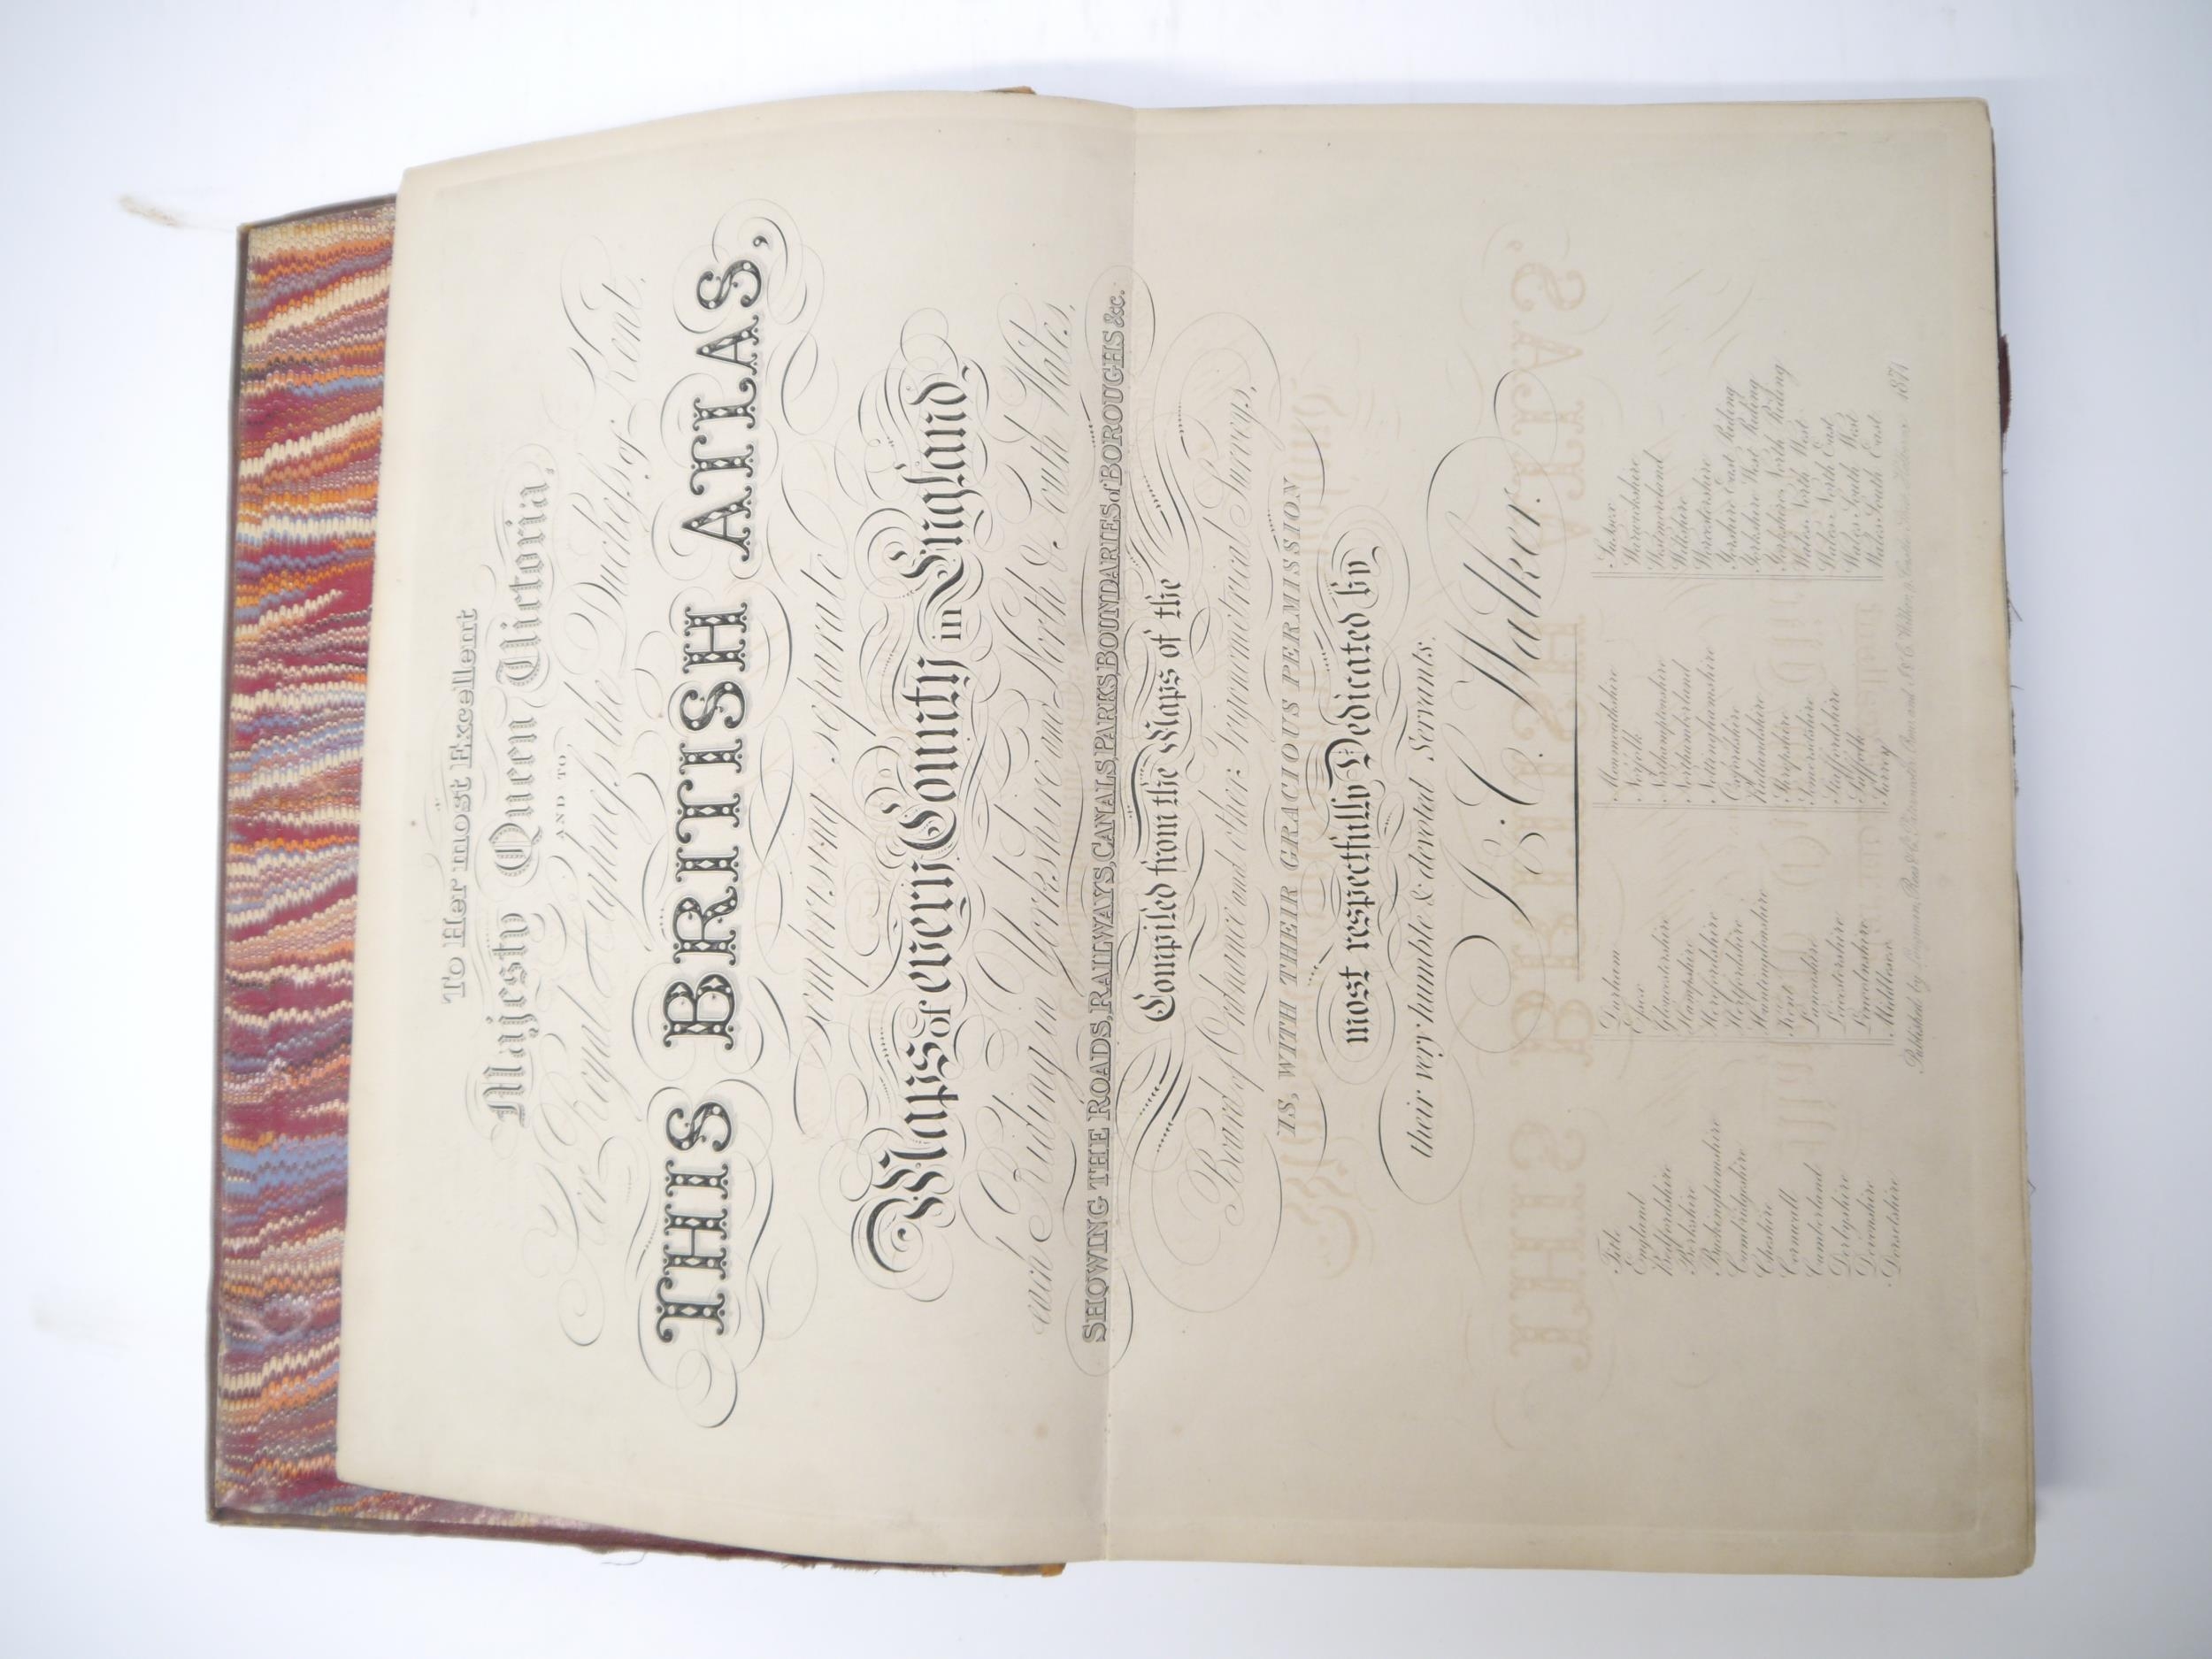 To Her most Excellent
Majesty Queen Victoria,
AND TO
Her Royal Highness the Duchess of Kent,
THIS BRITISH ATLAS,
comprising separate
Maps of every County in England,
each Riding in Yorkshire and North & South Wales,
SHOWING THE ROADS, RAILWAYS, CANALS, PARKS, BOUNDARIES of BOROUGHS &c.
Compiled from the Maps of the
Board of Ordnance and other Trigonometrical Surveys,
IS, WITH THEIR GRACIOUS PERMISSION
most respectfully Dedicated by
their very humble & devoted Servants.
J. & C. Walker.
Title
England
Bedfordshire
Berkshire
Buckinghamshire
Cambridgeshire
Cheshire
Cornwall
Cumberland
Derbyshire
Devonshire
Dorsetshire
Durham
Essex
Gloucestershire
Hampshire
Herefordshire
Hertfordshire
Huntingdonshire
Kent
Lancashire
Leicestershire
Lincolnshire
Middlesex
Monmouthshire
Norfolk
Northamptonshire
Northumberland
Nottinghamshire
Oxfordshire
Rutlandshire
Shropshire
Somersetshire
Staffordshire
Suffolk
Surrey
Sussex
Warwickshire
Westmoreland
Wiltshire
Worcestershire
Yorkshire East Riding
Yorkshire West Riding
Yorkshire North Riding
Wales North West
Wales North East
Wales South West
Wales South East
Published by Longman, Rees & Co. Paternoster Row and J. & C. Walker, 9 Castle Street Holborn 1871